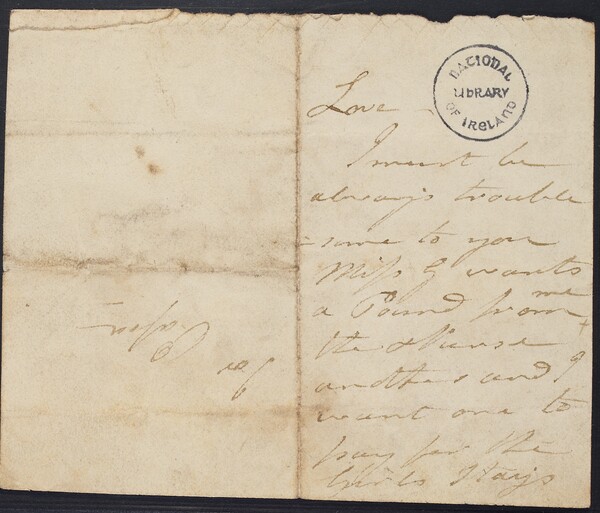 NATIONAL
LIBRARY
OF IRELAND
Love
I must be
always trouble
-some to you
Miss G wants
a Pound from me
the Nurse
another and I
want one to
pay for the
Girls Stays